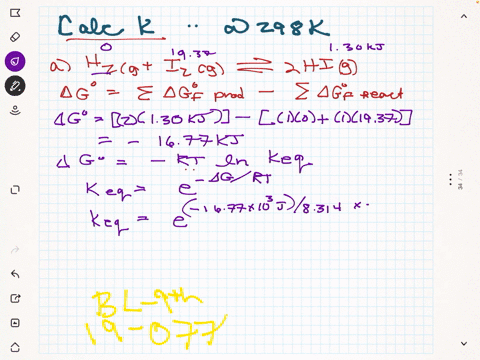 Calc K @ 298K
0 19.37 1.30 KJ
a) H2(g) + I2(g) ⇌ 2HI(g)
ΔG° = Σ ΔG°f prod - Σ ΔG°f react
ΔG° = [(2)(1.30 KJ)] - [(1)(0) + (1)(19.37)]
= - 16.77 KJ
ΔG° = - RT ln Keq
Keq = e^-ΔG/RT
Keq = e^(-16.77 x 10^3 J)/8.314 x
BL-9th
19-077